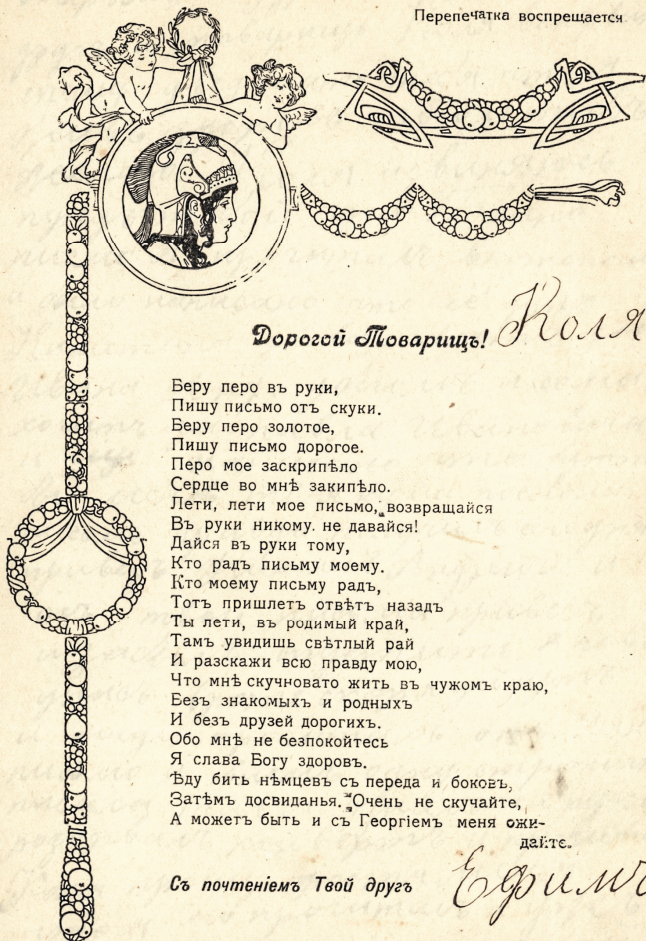 Перепечатка воспрещается
Дорогой Товарищъ! Коля
Беру перо въ руки,
Пишу письмо отъ скуки.
Беру перо золотое,
Пишу письмо дорогое.
Перо мое заскрипѣло
Сердце во мнѣ закипѣло.
Лети, лети мое письмо, возвращайся
Въ руки никому. не давайся!
Дайся въ руки тому,
Кто радъ письму моему.
Кто моему письму радъ,
Тотъ пришлетъ отвѣтъ назадъ
Ты лети, въ родимый край,
Тамъ увидишь свѣтлый рай
И разскажи всю правду мою,
Что мнѣ скучновато жить въ чужомъ краю,
Безъ знакомыхъ и родныхъ
И безъ друзей дорогихъ.
Обо мнѣ не безпокойтесь
Я слава Богу здоровъ.
Ѣду бить нѣмцевъ съ переда и боковъ,
Затѣмъ досвиданья. Очень не скучайте,
А можетъ быть и съ Георгіемъ меня ожи-
дайте.
Съ почтеніемъ Твой другъ Ефимъ